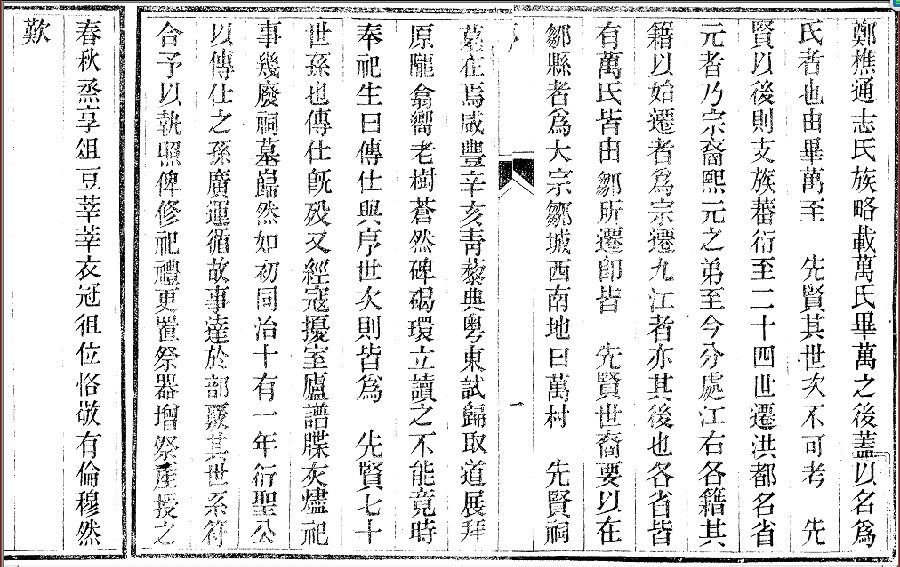 鄭樵通志氏族略載萬氏畢萬之後蓋以名爲
氏者也由畢萬至　先賢其世次不可考　先
賢以後則支族蕃衍至二十四世遷洪都名省
元者乃宗裔熙元之弟至今分處江右各籍其
籍以始遷者爲宗遷九江者亦其後也各省皆
有萬氏皆由鄒所遷卽皆　先賢世裔要以在
鄒縣者爲大宗鄒城西南地曰萬村　先賢祠
一
墓在焉咸豐辛亥靑藜典粵東試歸取道展拜
原隴翕嚮老樹蒼然碑碣環立讀之不能竟時
奉祀生曰傳仕與序世次則皆爲　先賢七十
世孫也傳仕旣歿又經寇擾室廬譜牒灰燼祀
事幾廢祠墓巋然如初同治十有一年衍聖公
以傳仕之孫廣運循故事達於部覈其世系符
合予以執照俾修祀禮更置祭器增祭產授之
春秋烝享俎豆莘莘衣冠徂位恪敬有倫穆然
歎